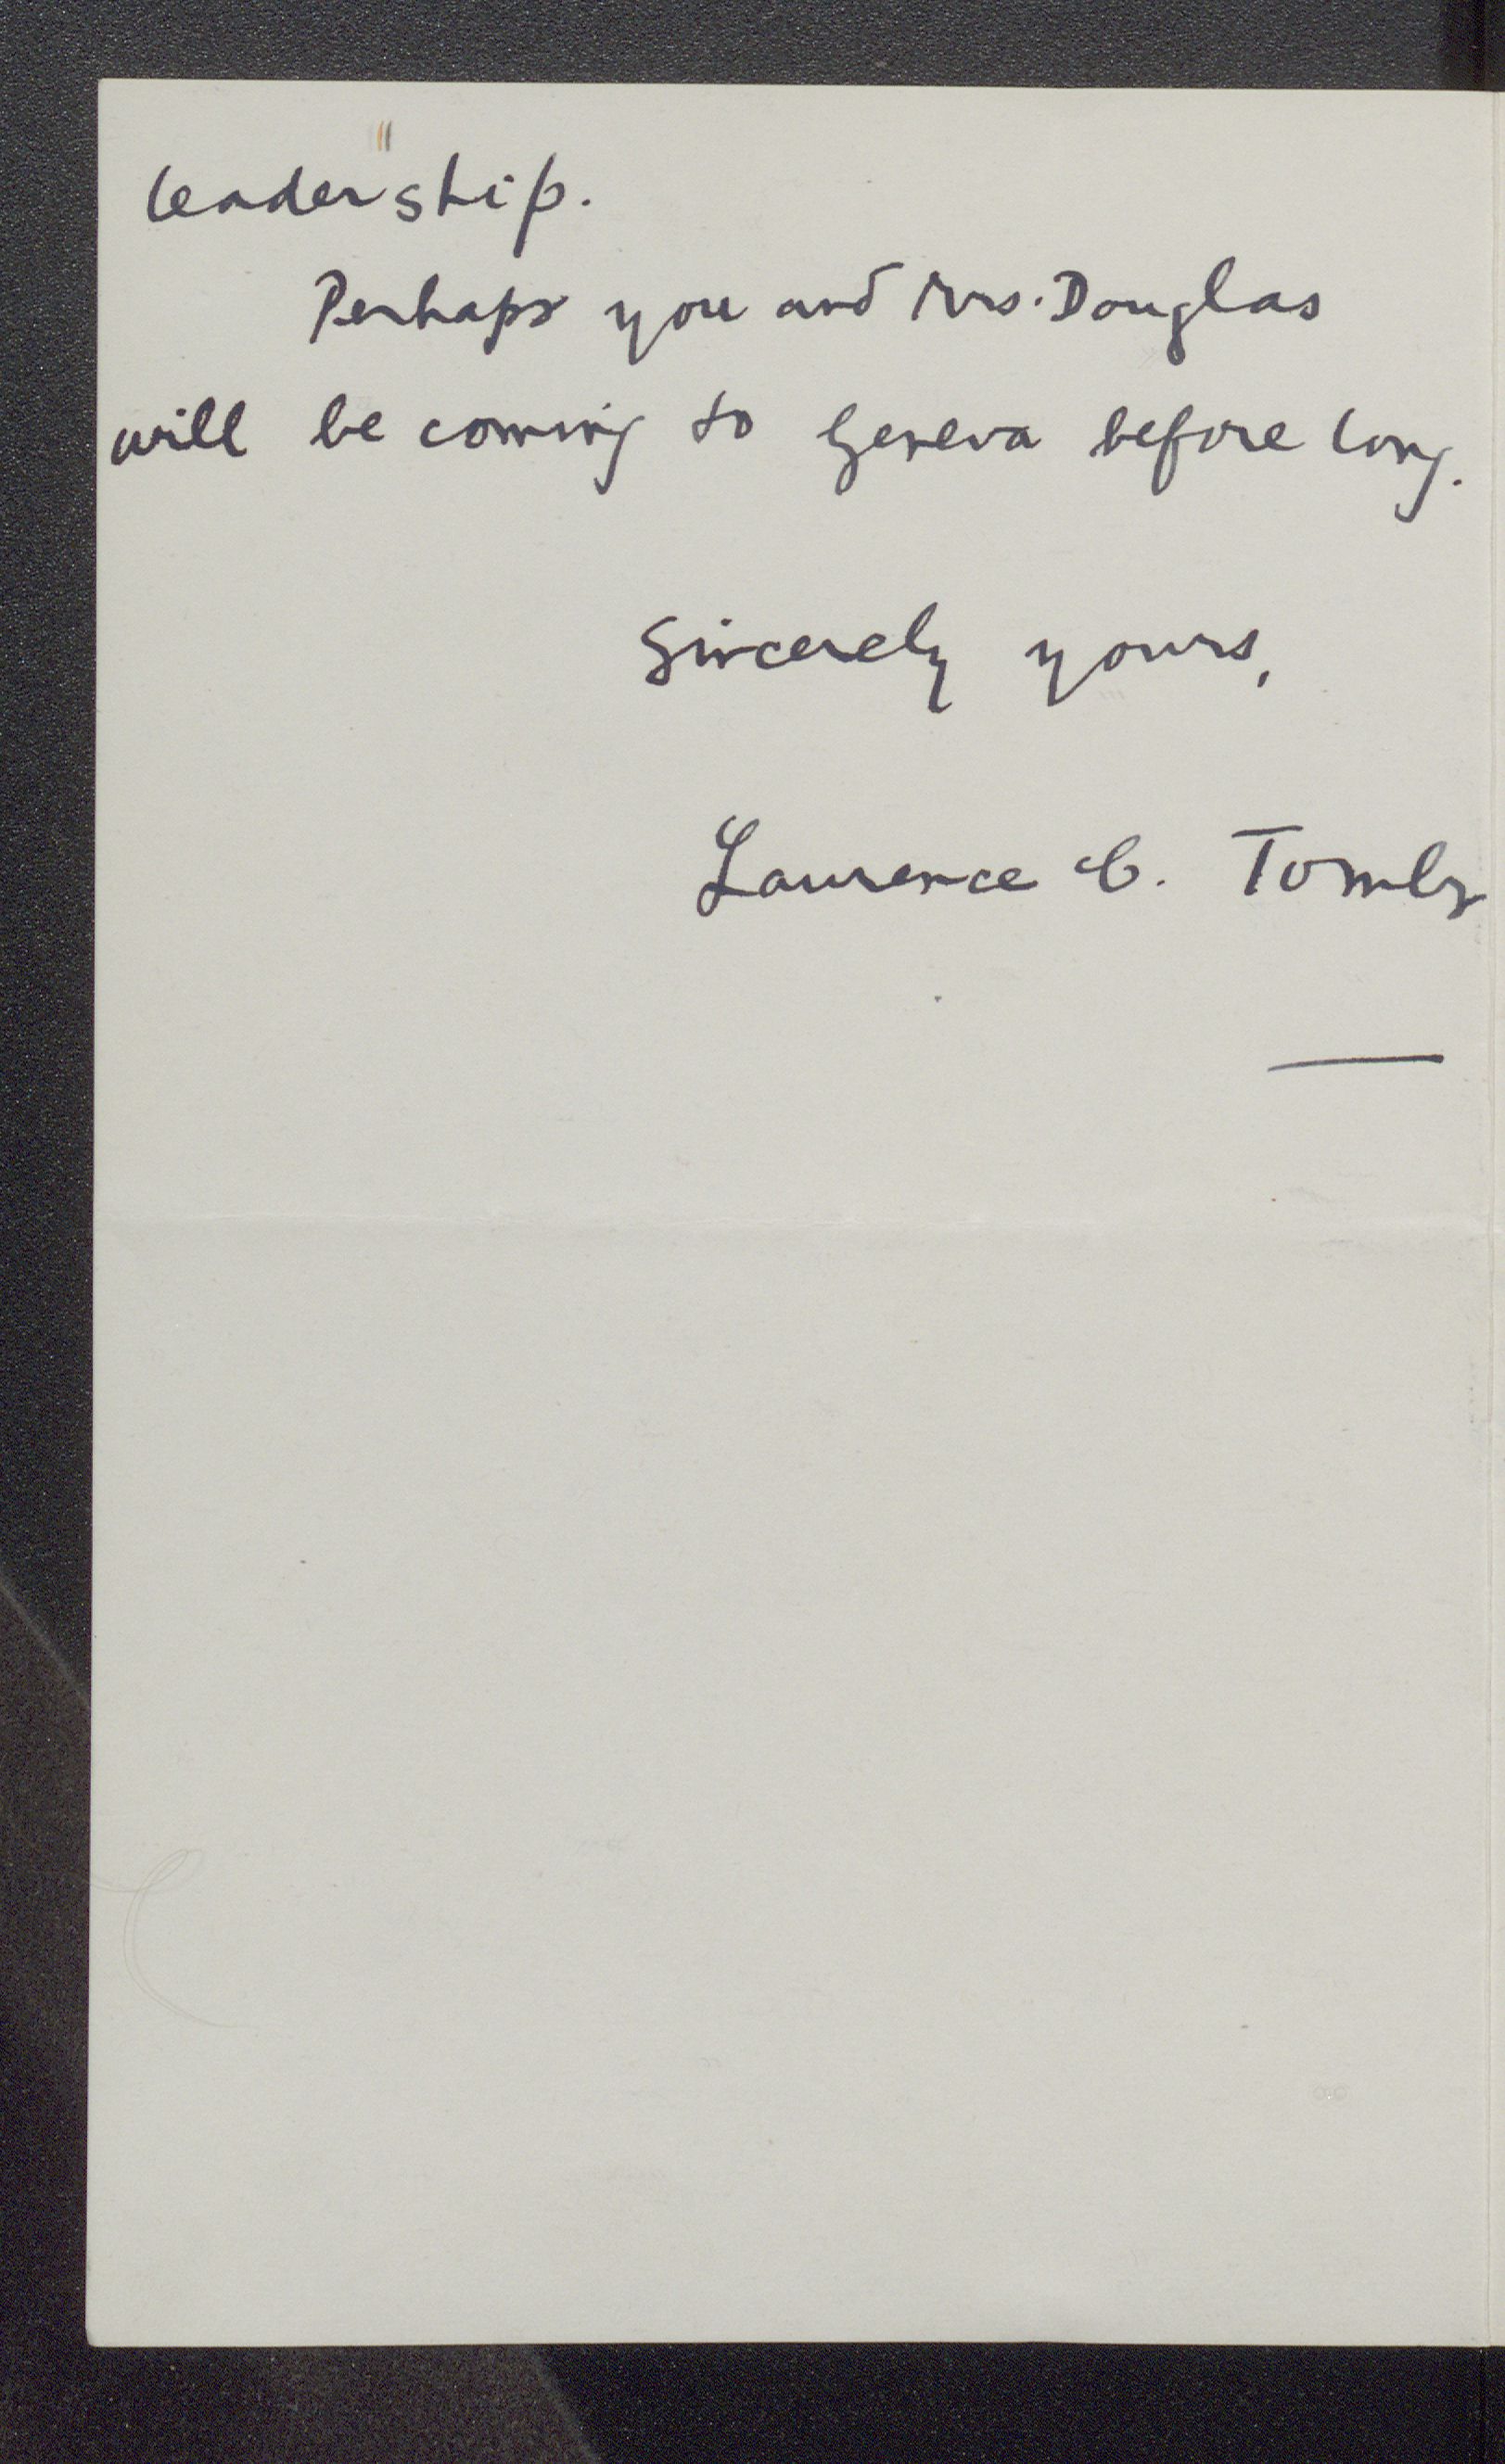 leadership.
Perhaps you and Mrs. Douglas
will be coming to Geneva before long.
Sincerely yours,
Laurence C. Tomby